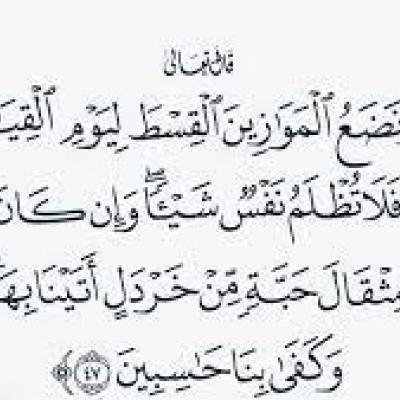 قال تعالى
نَضَعُ الْمَوَازِينَ الْقِسْطَ لِيَوْمِ الْقِيَا
فَلَا تُظْلَمُ نَفْسٌ شَيْئًا ۖ وَإِن كَانَ
مِثْقَالَ حَبَّةٍ مِّنْ خَرْدَلٍ أَتَيْنَا بِهَا
وَكَفَىٰ بِنَا حَاسِبِينَ ﴿٤٧﴾